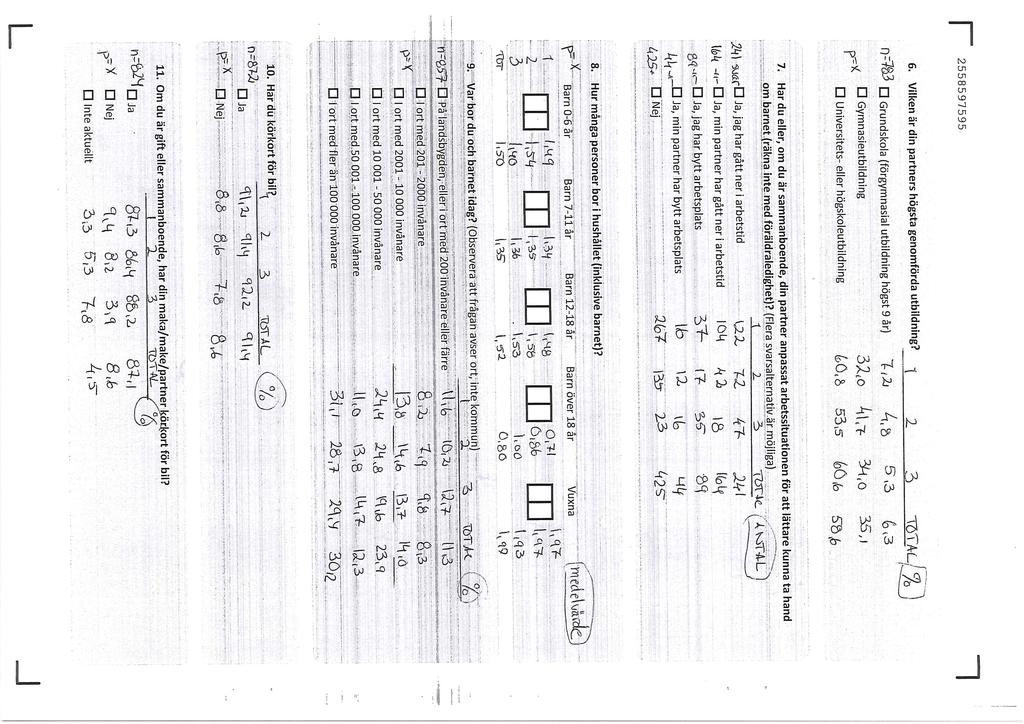 2558597595
6. Vilken är din partners högsta genomförda utbildning? 1 2 3 TOTAL %
n=783 Grundskola (förgymnasial utbildning högst 9 år) 7,2 4,8 5,3 6,3
Gymnasieutbildning 32,0 41,7 34,0 35,1
p=X Universitets- eller högskoleutbildning 60,8 53,5 60,6 58,6
7. Har du eller, om du är sammanboende, din partner anpassat arbetssituationen för att lättare kunna ta hand
om barnet (räkna inte med föräldraledighet)? (Flera svarsalternativ är möjliga)
1 2 3 TOTAL ANTAL
241 svar Ja, jag har gått ner i arbetstid 122 72 47 241
164 -"- Ja, min partner har gått ner i arbetstid 104 42 18 164
89 -"- Ja, jag har bytt arbetsplats 37 17 35 89
44 -"- Ja, min partner har bytt arbetsplats 16 12 16 44
425 Nej 267 135 23 425
8. Hur många personer bor i hushållet (inklusive barnet)?
medelvärde
p=X Barn 0-6 år Barn 7-11 år Barn 12-18 år Barn över 18 år Vuxna
1 1,49 1,34 1,48 0,71 1,97
2 1,54 1,35 1,58 0,86 1,97
3 1,40 1,36 1,53 1,00 1,93
TOT 1,50 1,35 1,52 0,80 1,99
9. Var bor du och barnet idag? (Observera att frågan avser ort, inte kommun)
1 2 3 TOTAL %
n=857 På landsbygden, eller i ort med 200 invånare eller färre 11,6 10,2 12,7 11,3
I ort med 201 - 2000 invånare 8,2 7,9 9,8 8,3
p=X I ort med 2001 - 10 000 invånare 13,8 14,6 13,7 14,0
I ort med 10 001 - 50 000 invånare 24,4 24,8 19,6 23,9
I ort med 50 001 - 100 000 invånare 11,0 13,8 14,7 12,3
I ort med fler än 100 000 invånare 31,1 28,7 29,4 30,2
10. Har du körkort för bil? 1 2 3 TOTAL %
n=872 Ja 91,2 91,4 92,2 91,4
p=X Nej 8,8 8,6 7,8 8,6
11. Om du är gift eller sammanboende, har din maka/make/partner körkort för bil?
1 2 3 TOTAL %
n=824 Ja 87,3 86,4 88,2 87,1
Nej 9,4 8,2 3,9 8,6
p=X Inte aktuellt 3,3 5,3 7,8 4,5